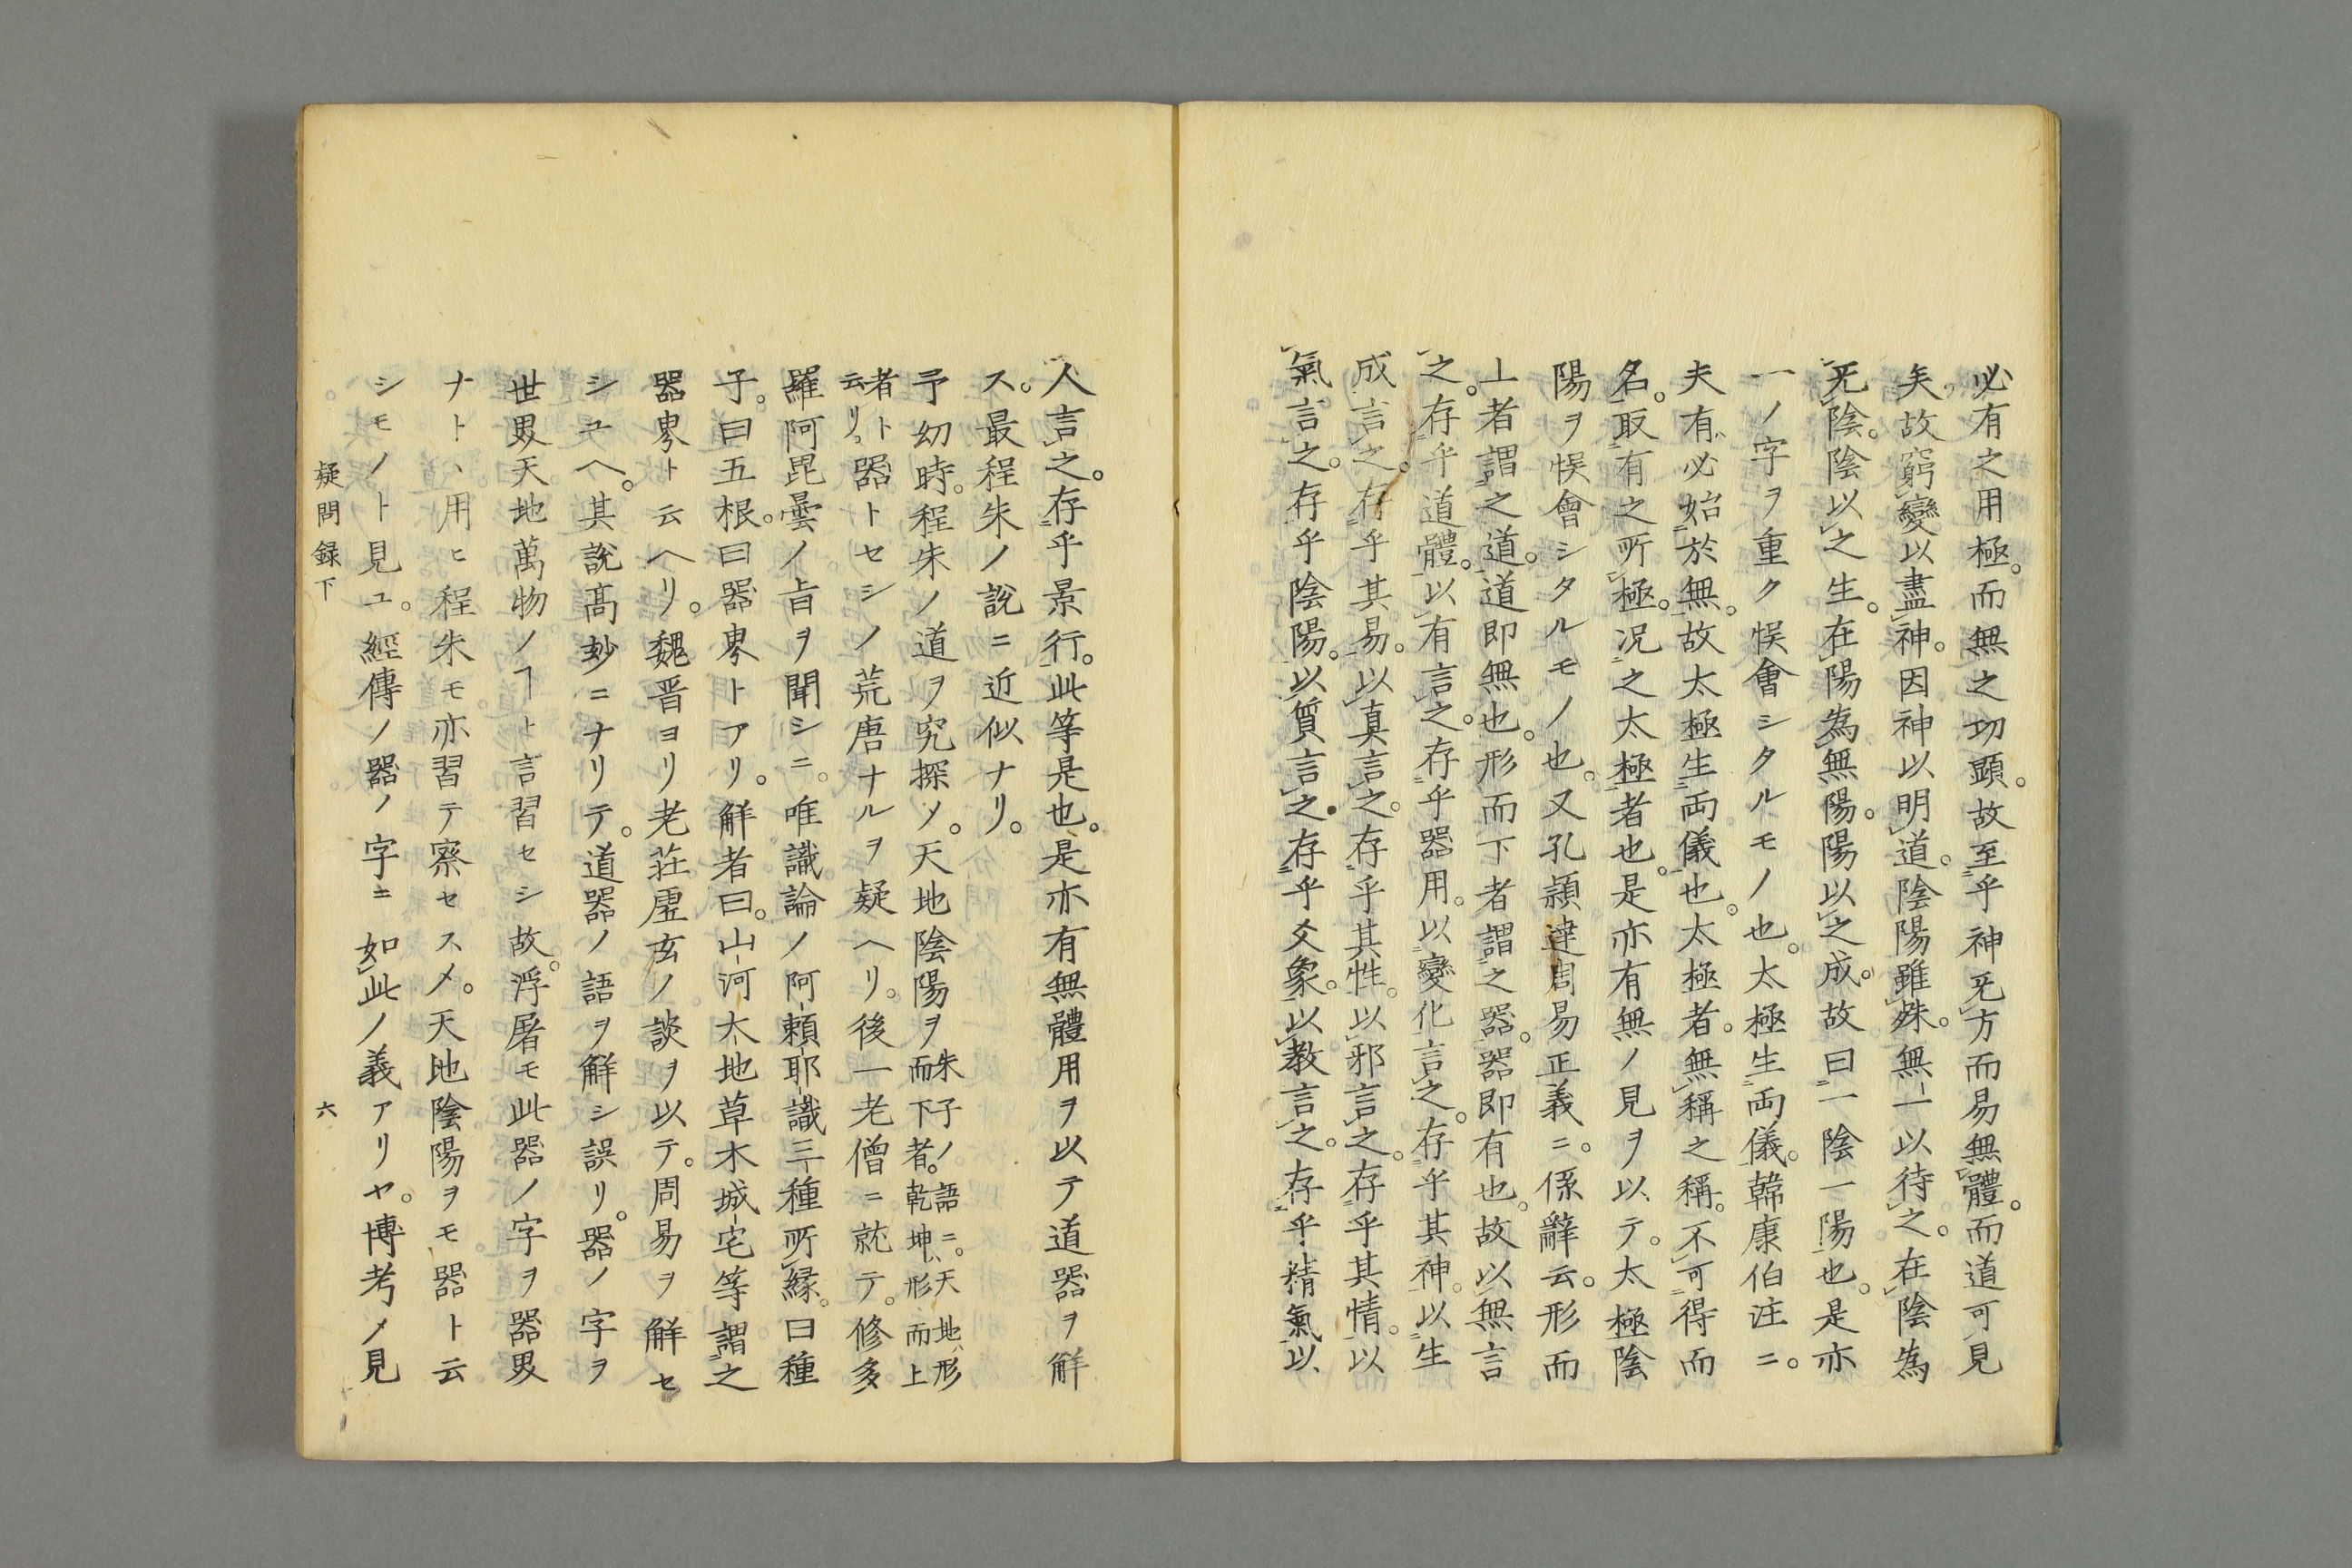 必有之用極。而無之功顕。故至乎神旡方而易無體。而道可見
矣。故窮變以盡神。因神以明道。陰陽雖殊。無一以待之。在陰為
旡陰。陰以之生。在陽為無陽。陽以之成。故曰一陰一陽也。是亦
一ノ字ヲ重ク悞會シタルモノ也。太極生両儀。韓康伯注ニ。
夫有必始於無。故太極生両儀也。太極者。無稱之稱。不可得而
名。取有之所極。况之太極者也。是亦有無ノ見ヲ以テ。太極陰
陽ヲ悞會シタルモノ也。又孔頴達周易正義ニ。係辭云。形而
上者謂之道。道即無也。形而下者謂之器。器即有也。故以無言
之。存乎道體。以有言之。存乎器用。以變化言之。存乎其神。以生
成言之。存乎其易。以真言之。存乎其性。以邪言之。存乎其情。以
氣言之。存乎陰陽。以質言之。存乎爻象。以教言之。存乎精氣以
人言之。存乎景行。此等是也。是亦有無體用ヲ以テ道器ヲ解
ス。最程朱ノ説ニ近似ナリ。
予幼時。程朱ノ道ヲ究探メ。天地陰陽ヲ朱子ノ語ニ。天地ハ形而下者。乾坤ハ形而上
者ト云リ。器トセシノ荒唐ナルヲ疑ヘリ。後一老僧ニ就テ。修多
羅阿毘曇ノ旨ヲ聞シニ。唯識論ノ阿頼耶識三種所縁。曰種
子。曰五根。曰器畍トアリ。解者曰。山河大地草木城宅等謂之
器畍ト云ヘリ。魏晋ヨリ老荘虚玄ノ談ヲ以テ。周易ヲ解セ
シユヘ。其説髙玅ニナリテ。道器ノ語ヲ解シ誤リ。器ノ字ヲ
世畍天地萬物ノヿト言習セシ故。浮屠モ此器ノ字ヲ器畍
ナト丶用ヒ程朱モ亦習テ察セスメ。天地陰陽ヲモ器ト云
シモノト見ユ。經傳ノ器ノ字ニ如此ノ義アリヤ。博考メ見
疑問録下 六